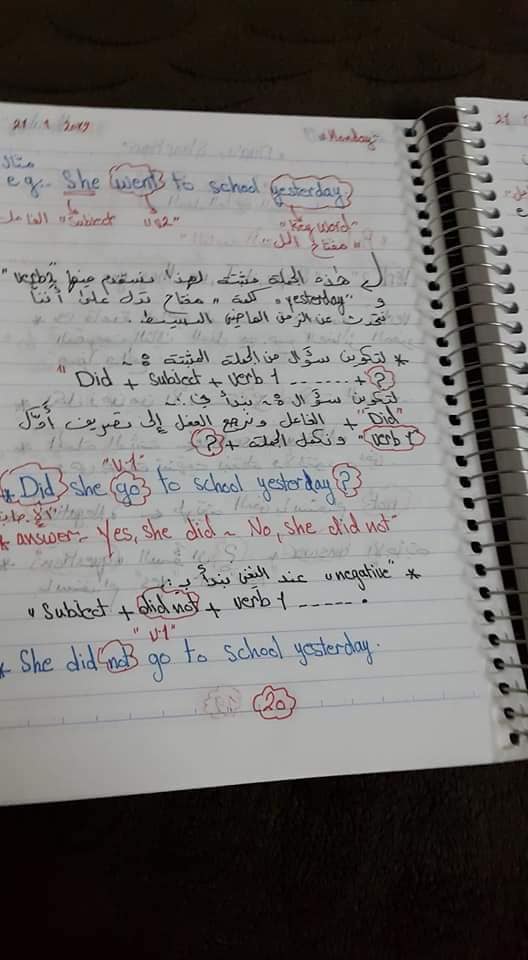 21/1/2019 "Monday"
مثال
e.g.. She went to school yesterday
الفاعل "Subject" "V2" "Key word"
"مفتاح الحل"
هذه الجملة مثبتة لهذا يستخدم فيها "verb2"
و "yesterday" كلمة مفتاح تدل على أننا
نتحدث عن الزمن الماضي البسيط.
* لتكوين سؤال من الجملة المثبتة
"Did + Subject + verb 1 ...... + ?
لتكوين سؤال نبدأ بـ
"Did" + الفاعل ونرجع الفعل إلى تصريف أول
"verb 1" ونكمل الجملة + ?
"V.1"
* Did she go to school yesterday?
* answer:- Yes, she did - No, she did not
* "negative" عند النفي نبدأ بـ:
"Subject + did not + verb 1 ------.
"V.1"
* She did not go to school yesterday.
20
21